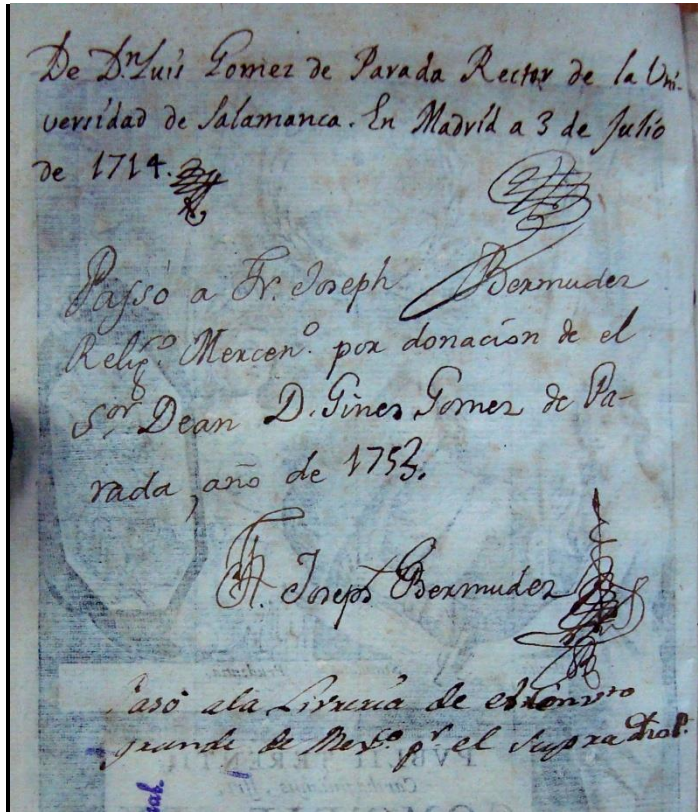 De Dn. Luis Gomez de Parada Rector de la Uni-
versidad de Salamanca. En Madrid a 3 de Julio
de 1714.
Passó a Fr. Joseph Bermudez
Religo. Merceno. por donación de el
Sor. Dean D. Gines Gomez de Pa-
rada, año de 1753.
Fr. Joseph Bermudez
Pasó ala Libreria de
grande de Mexo. pr. el supra
PVBLII TERENTII